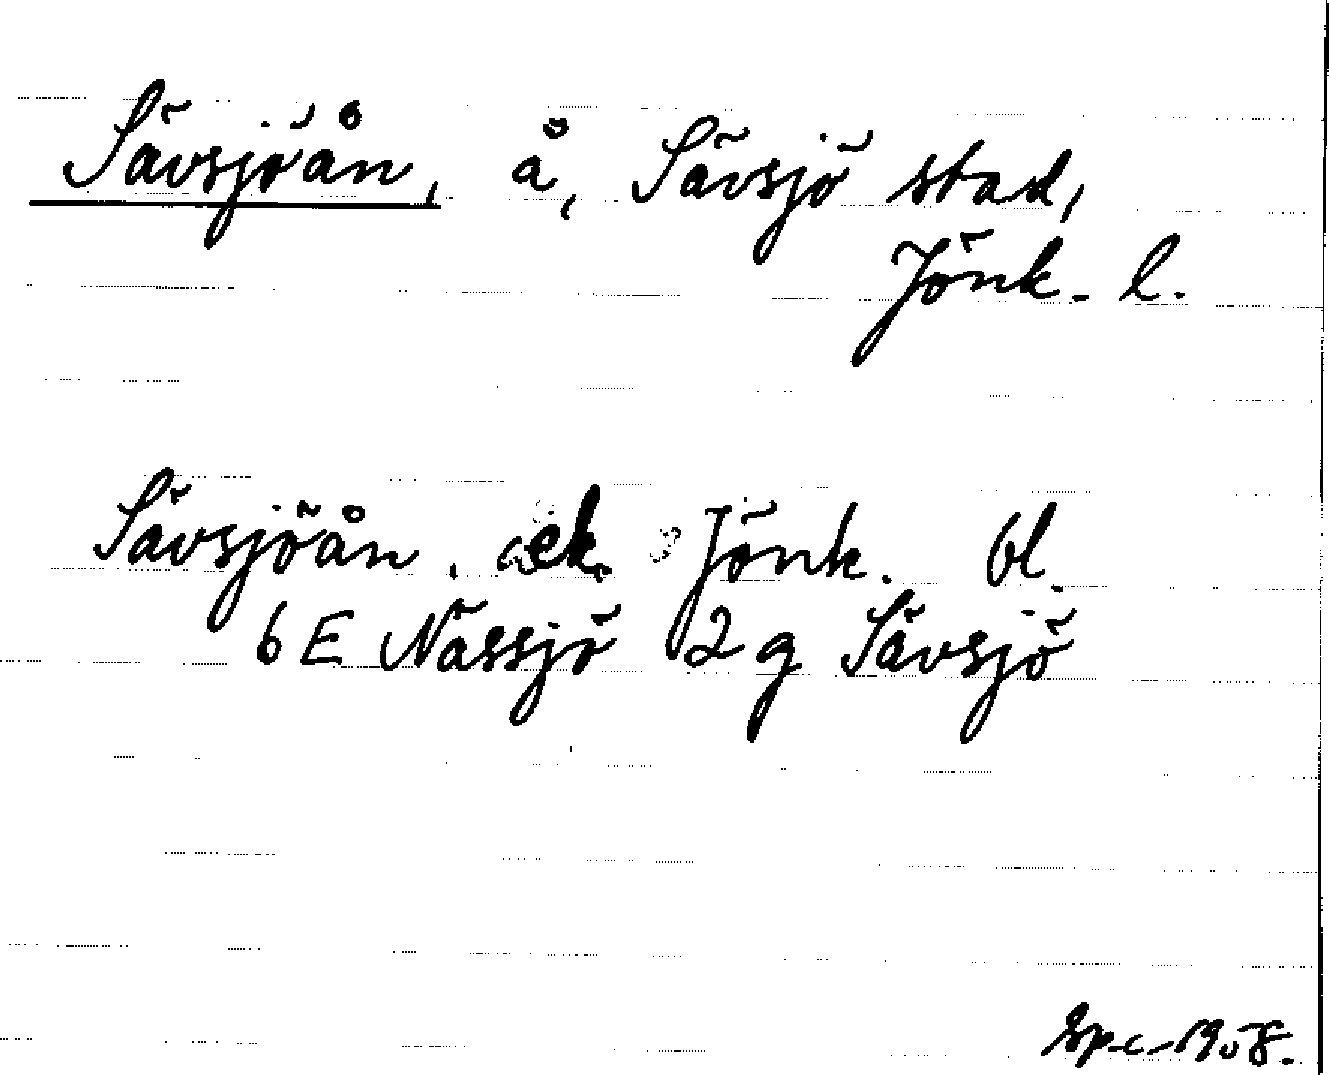 Sävsjöån, å, Sävsjö stad,
Jönk. l.
Sävsjöån. ek. Jönk. bl.
6E Nässjö 2g Sävsjö
1958.